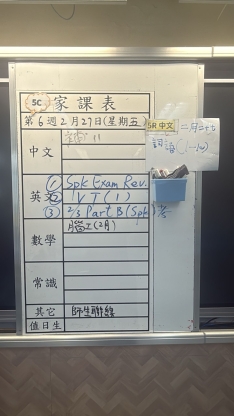 5C 家課表
第6週2月27日(星期五)
5R 中文
二月二十七
詞語(1-10)
中文
英文
① Spk Exam Rev.
② VT (1)
③ 2/3 Part B (Spk)
數學
腦工(2月)
常識
其它
師生聯絡
值日生